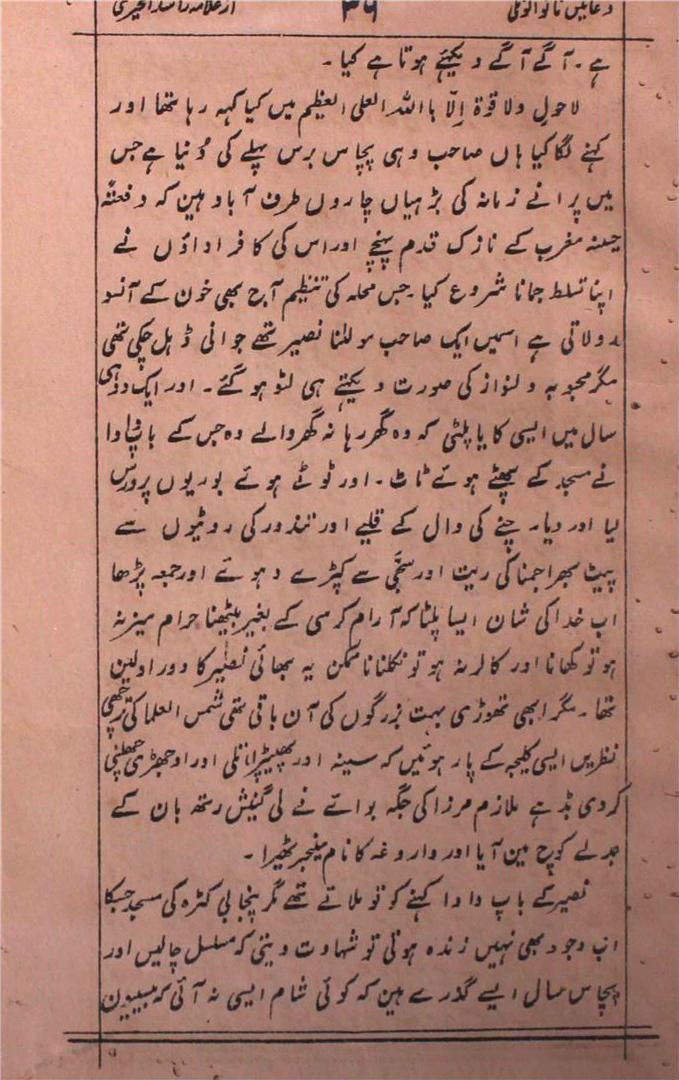 از علامہ راشد الخیری ۳۶ دعائیں
ہے۔ آگے آگے دیکھئے ہوتا ہے کیا۔
لاحول ولا قوۃ اِلّا با اللہ العلی العظیم میں کیا کہہ رہا تھا اور
کہنے لگا کیا ہاں صاحب وہی پچاس برس پہلے کی دُنیا ہے جس
میں پرانے زمانہ کی بڑھیاں چاروں طرف آباد ہین کہ دفعتہً
حسینہ مغرب کے نازک قدم پہنچے اور اس کی کافر اداؤں نے
اپنا تسلط جمانا شروع کیا۔ جس محلہ کی تنظیم آج بھی خون کے آنسو
رولاتی ہے اسمیں ایک صاحب مولٰنا نصیر تھے جوانی ڈہل چکی تھی
مگر محبوبہ دلنواز کی صورت دیکہتے ہی لٹو ہو گئے۔ اور ایک دو ہی
سال میں ایسی کایا پلٹی کہ وہ گھر رہا نہ گھر والے وہ جس کے باپ دادا
نے مسجد کے پھٹے ہوئے ٹاٹ۔ اور ٹوٹے ہوئے بوریوں پر درس
لیا اور دیا۔ چنے کی دال کے قلیے اور تندور کی روٹیوں سے
پیٹ بھرا جمنا کی ریت اور سجّی سے کپڑے دہوئے اور جمعہ پڑھا
اب خدا کی شان ایسا پلٹا کہ آرام کرسی کے بغیر بیٹھنا حرام میز نہ
ہو تو کھانا اور کالر نہ ہو تو نکلنا ناممکن یہ بھائی نصیر کا دور اولین
تھا۔ مگر ابھی تھوڑی بہت بزرگوں کی آن باقی تھی شمس العلما کی ترچھی
نظریں ایسی کلیجہ کے پار ہوئیں کہ سینہ اور پھیپڑا نلی اور اوجھڑی چھلنی
کر دی بڈہے ملازم مرزا کی جگہ بوائے نے لی گنیش رتھ بان کے
بدلے کوچ مین آیا اور داروغہ کا نام منیجر ٹھیرا۔
نصیر کے باپ دادا کہنے کو تو ملاّتے تھے مگر پنجابی کٹرہ کی مسجد جسکا
اب وجود بھی نہیں زندہ ہوتی تو شہادت دیتی کہ مسلسل چالیس اور
پچاس سال ایسے گذرے ہین کہ کوئی شام ایسی نہ آئی کہ بیسیون